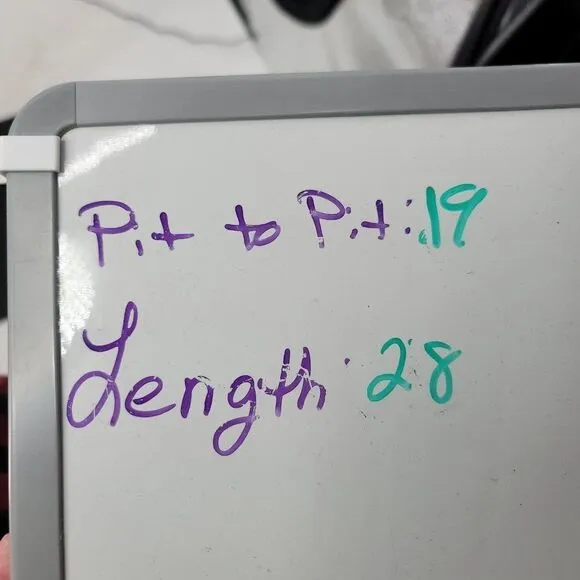 Pit to Pit: 19
Length: 28